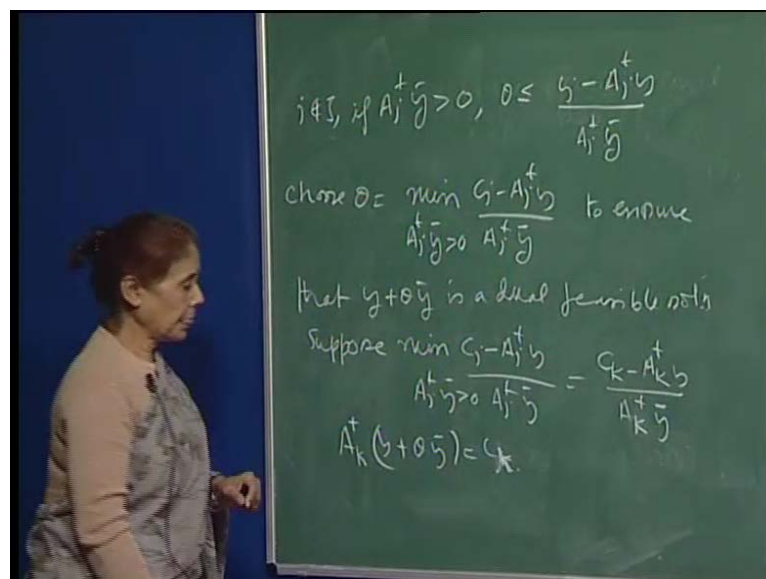 j∉J, if Aⱼᵗ ȳ > 0, θ ≤ (cⱼ - Aⱼᵗ y) / (Aⱼᵗ ȳ)
choose θ = min_{Aⱼᵗ ȳ > 0} (cⱼ - Aⱼᵗ y) / (Aⱼᵗ ȳ) to ensure
that y + θȳ is a dual feasible soln
Suppose min_{Aⱼᵗ ȳ > 0} (cⱼ - Aⱼᵗ y) / (Aⱼᵗ ȳ) = (c_k - A_kᵗ y) / (A_kᵗ ȳ)
A_kᵗ (y + θȳ) = c_k.